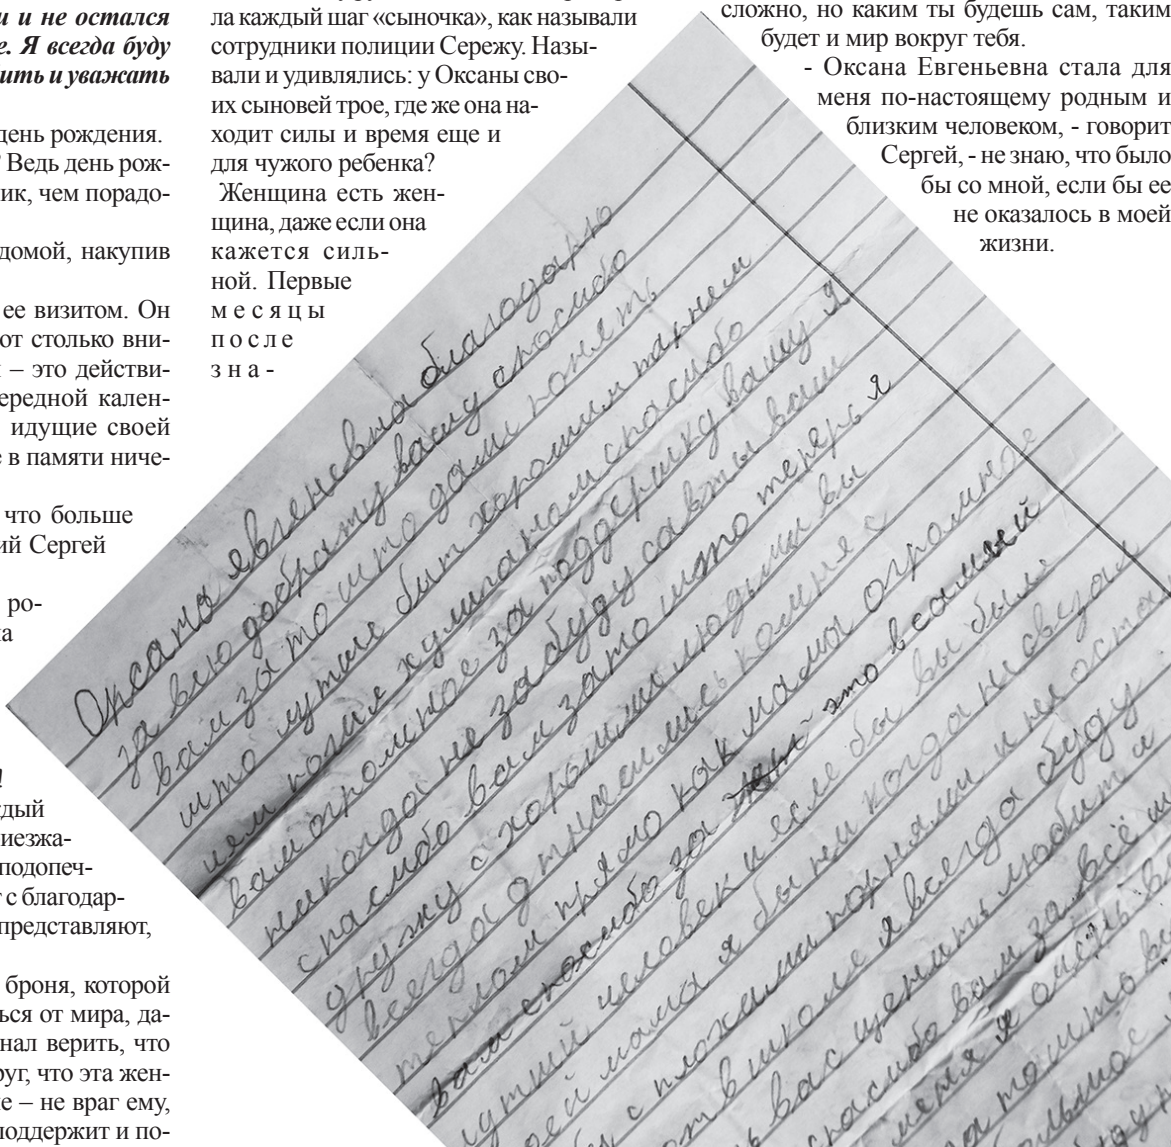 и и не остался
е. Я всегда буду
ить и уважать
день рождения.
? Ведь день рож-
ик, чем порадо-
домой, накупив
ее визитом. Он
от столько вни-
– это действи-
ередной кален-
идущие своей
е в памяти ниче-
что больше
ий Сергей
ро-
а
!
ждый
иезжа-
подопеч-
т с благодар-
представляют,
броня, которой
ься от мира, да-
нал верить, что
руг, что эта жен-
е – не враг ему,
поддержит и по-
ла каждый шаг «сыночка», как называли
сотрудники полиции Сережу. Назы-
вали и удивлялись: у Оксаны сво-
их сыновей трое, где же она на-
ходит силы и время еще и
для чужого ребенка?
Женщина есть жен-
щина, даже если она
кажется силь-
ной. Первые
месяцы
после
зна-
сложно, но каким ты будешь сам, таким
будет и мир вокруг тебя.
- Оксана Евгеньевна стала для
меня по-настоящему родным и
близким человеком, - говорит
Сергей, - не знаю, что было
бы со мной, если бы ее
не оказалось в моей
жизни.
Оксана явгеневна благодарю
за вею доброту вашу спосибо
вам за то што дали понять
што лутше быт хорошим парнем
чем хулиганом спасибо
вам огромное за поддержку вашу я
никогда не забуду савты ваши
спасибо вам за то што теперь я
дружу с хорошими людьми вы
всегда относились комне с
теплом прямо как мама огромное
вам спосибо за это в самый
человек и если бы вы были
моей мама я бы ни когда ни свезал
с плохими парнями и не оста
в школе я всегда буду
вас ценить любить и
спасибо вам за всё